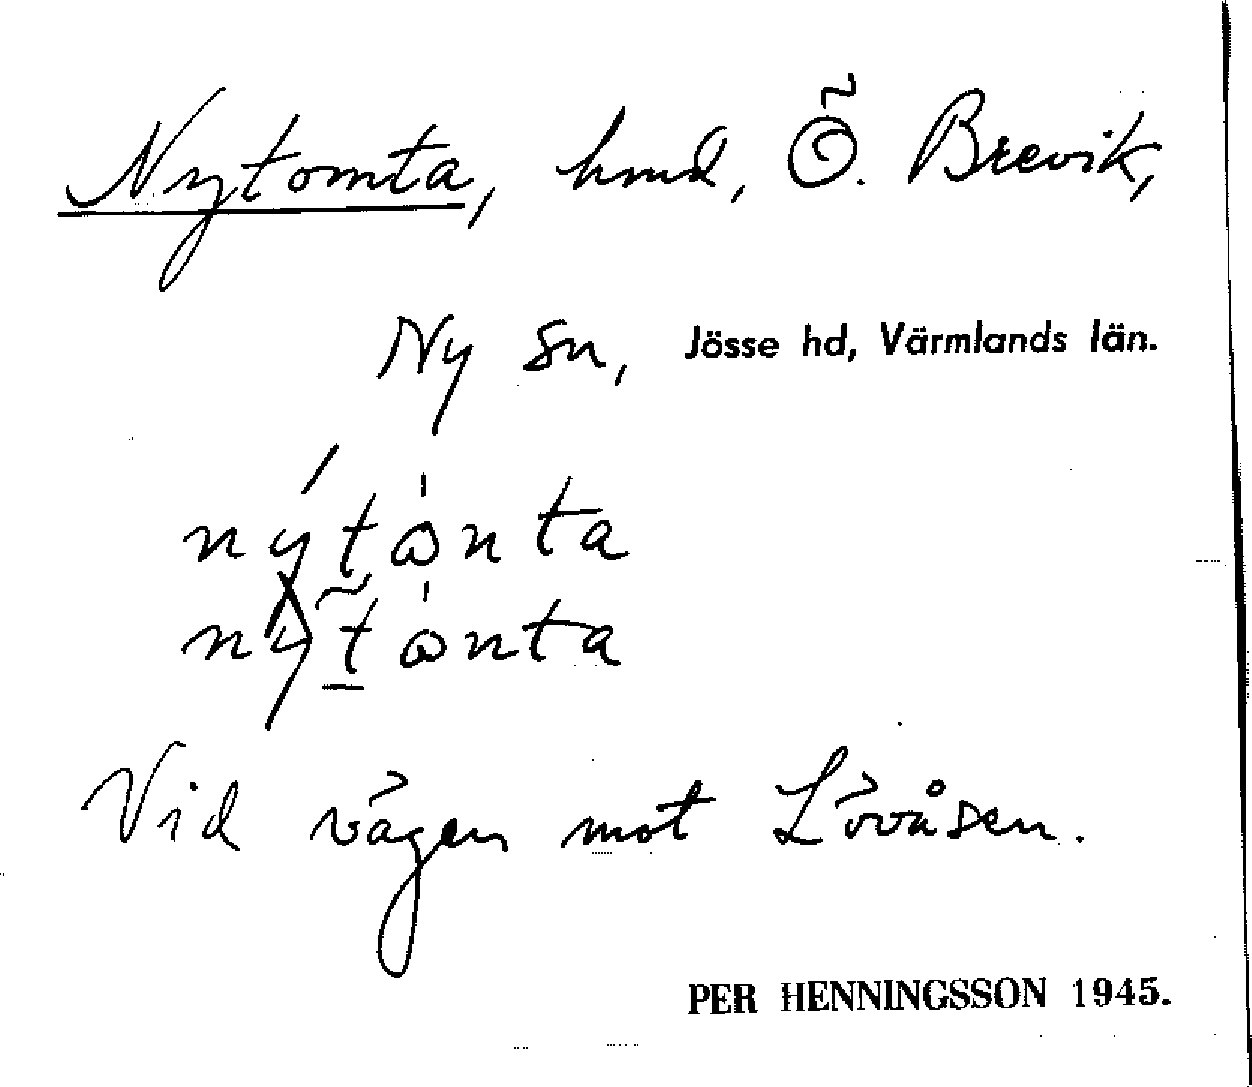 Nytomta, hmd, Ö. Brevik,
Ny sn, Jösse hd, Värmlands län.
nýtònta
nỳtònta
Vid vägen mot Lövåsen.
PER HENNINGSSON 1945.